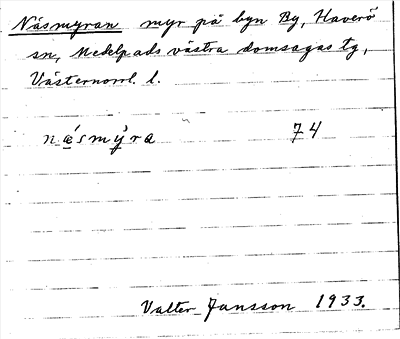 Näsmyran myr på byn By, Haverö
sn, Medelpads västra domsagas tg,
Västernorrl. l.
næ´smy`ra 74
Valter Jansson 1933.